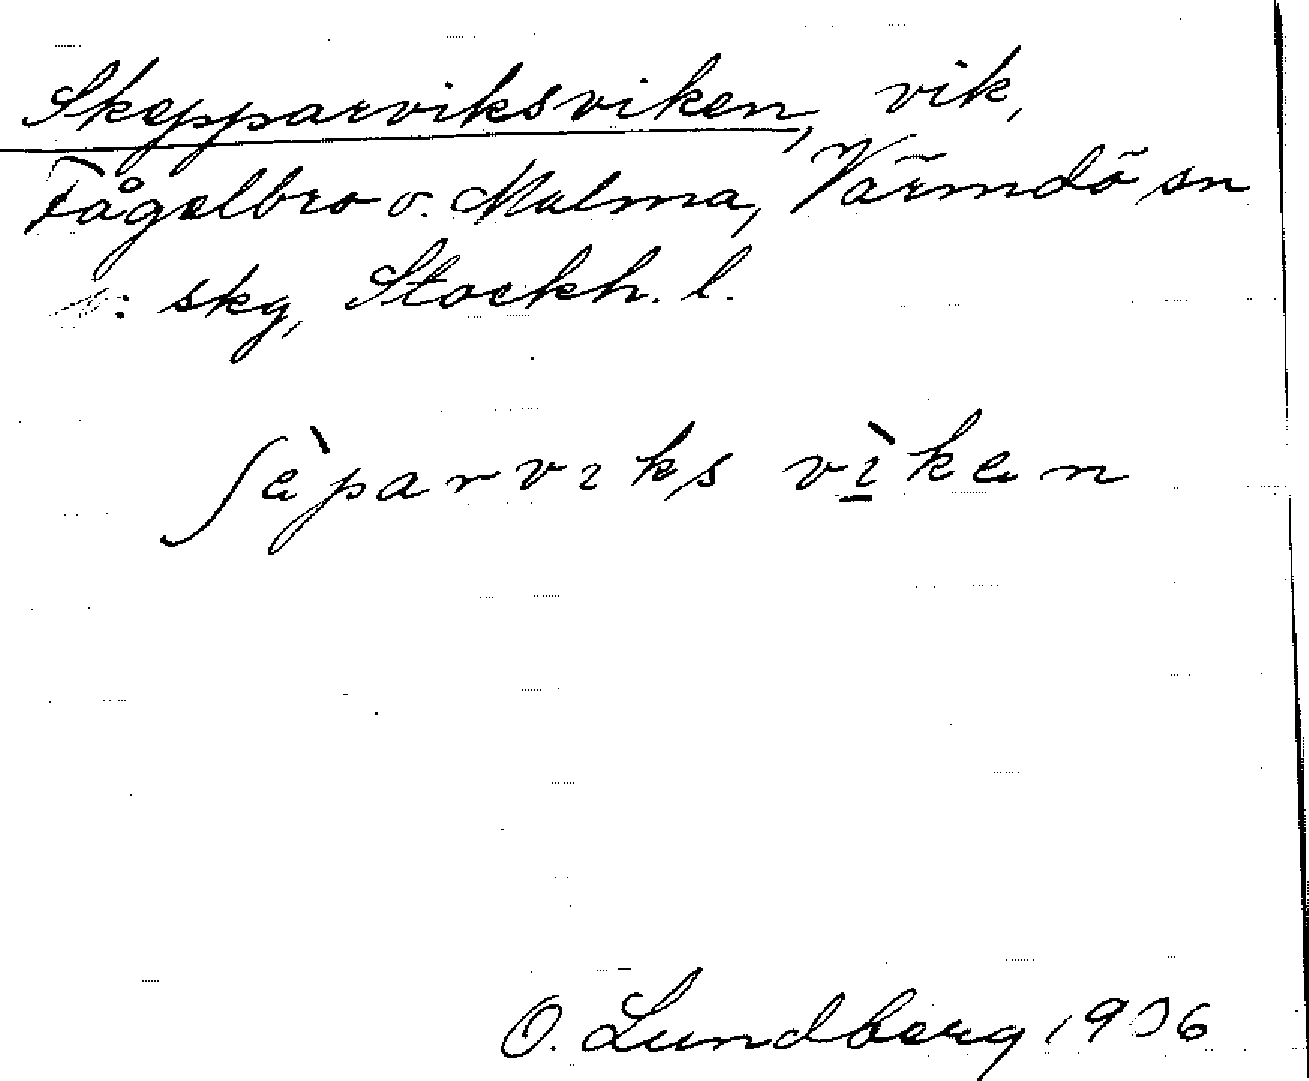 Skepparviksviken, vik,
Fågelbro o. Malma, Värmdö sn
sky, Stockh. l.
ʃèparvıks vı̱̀ken
O. Lundberg 1936